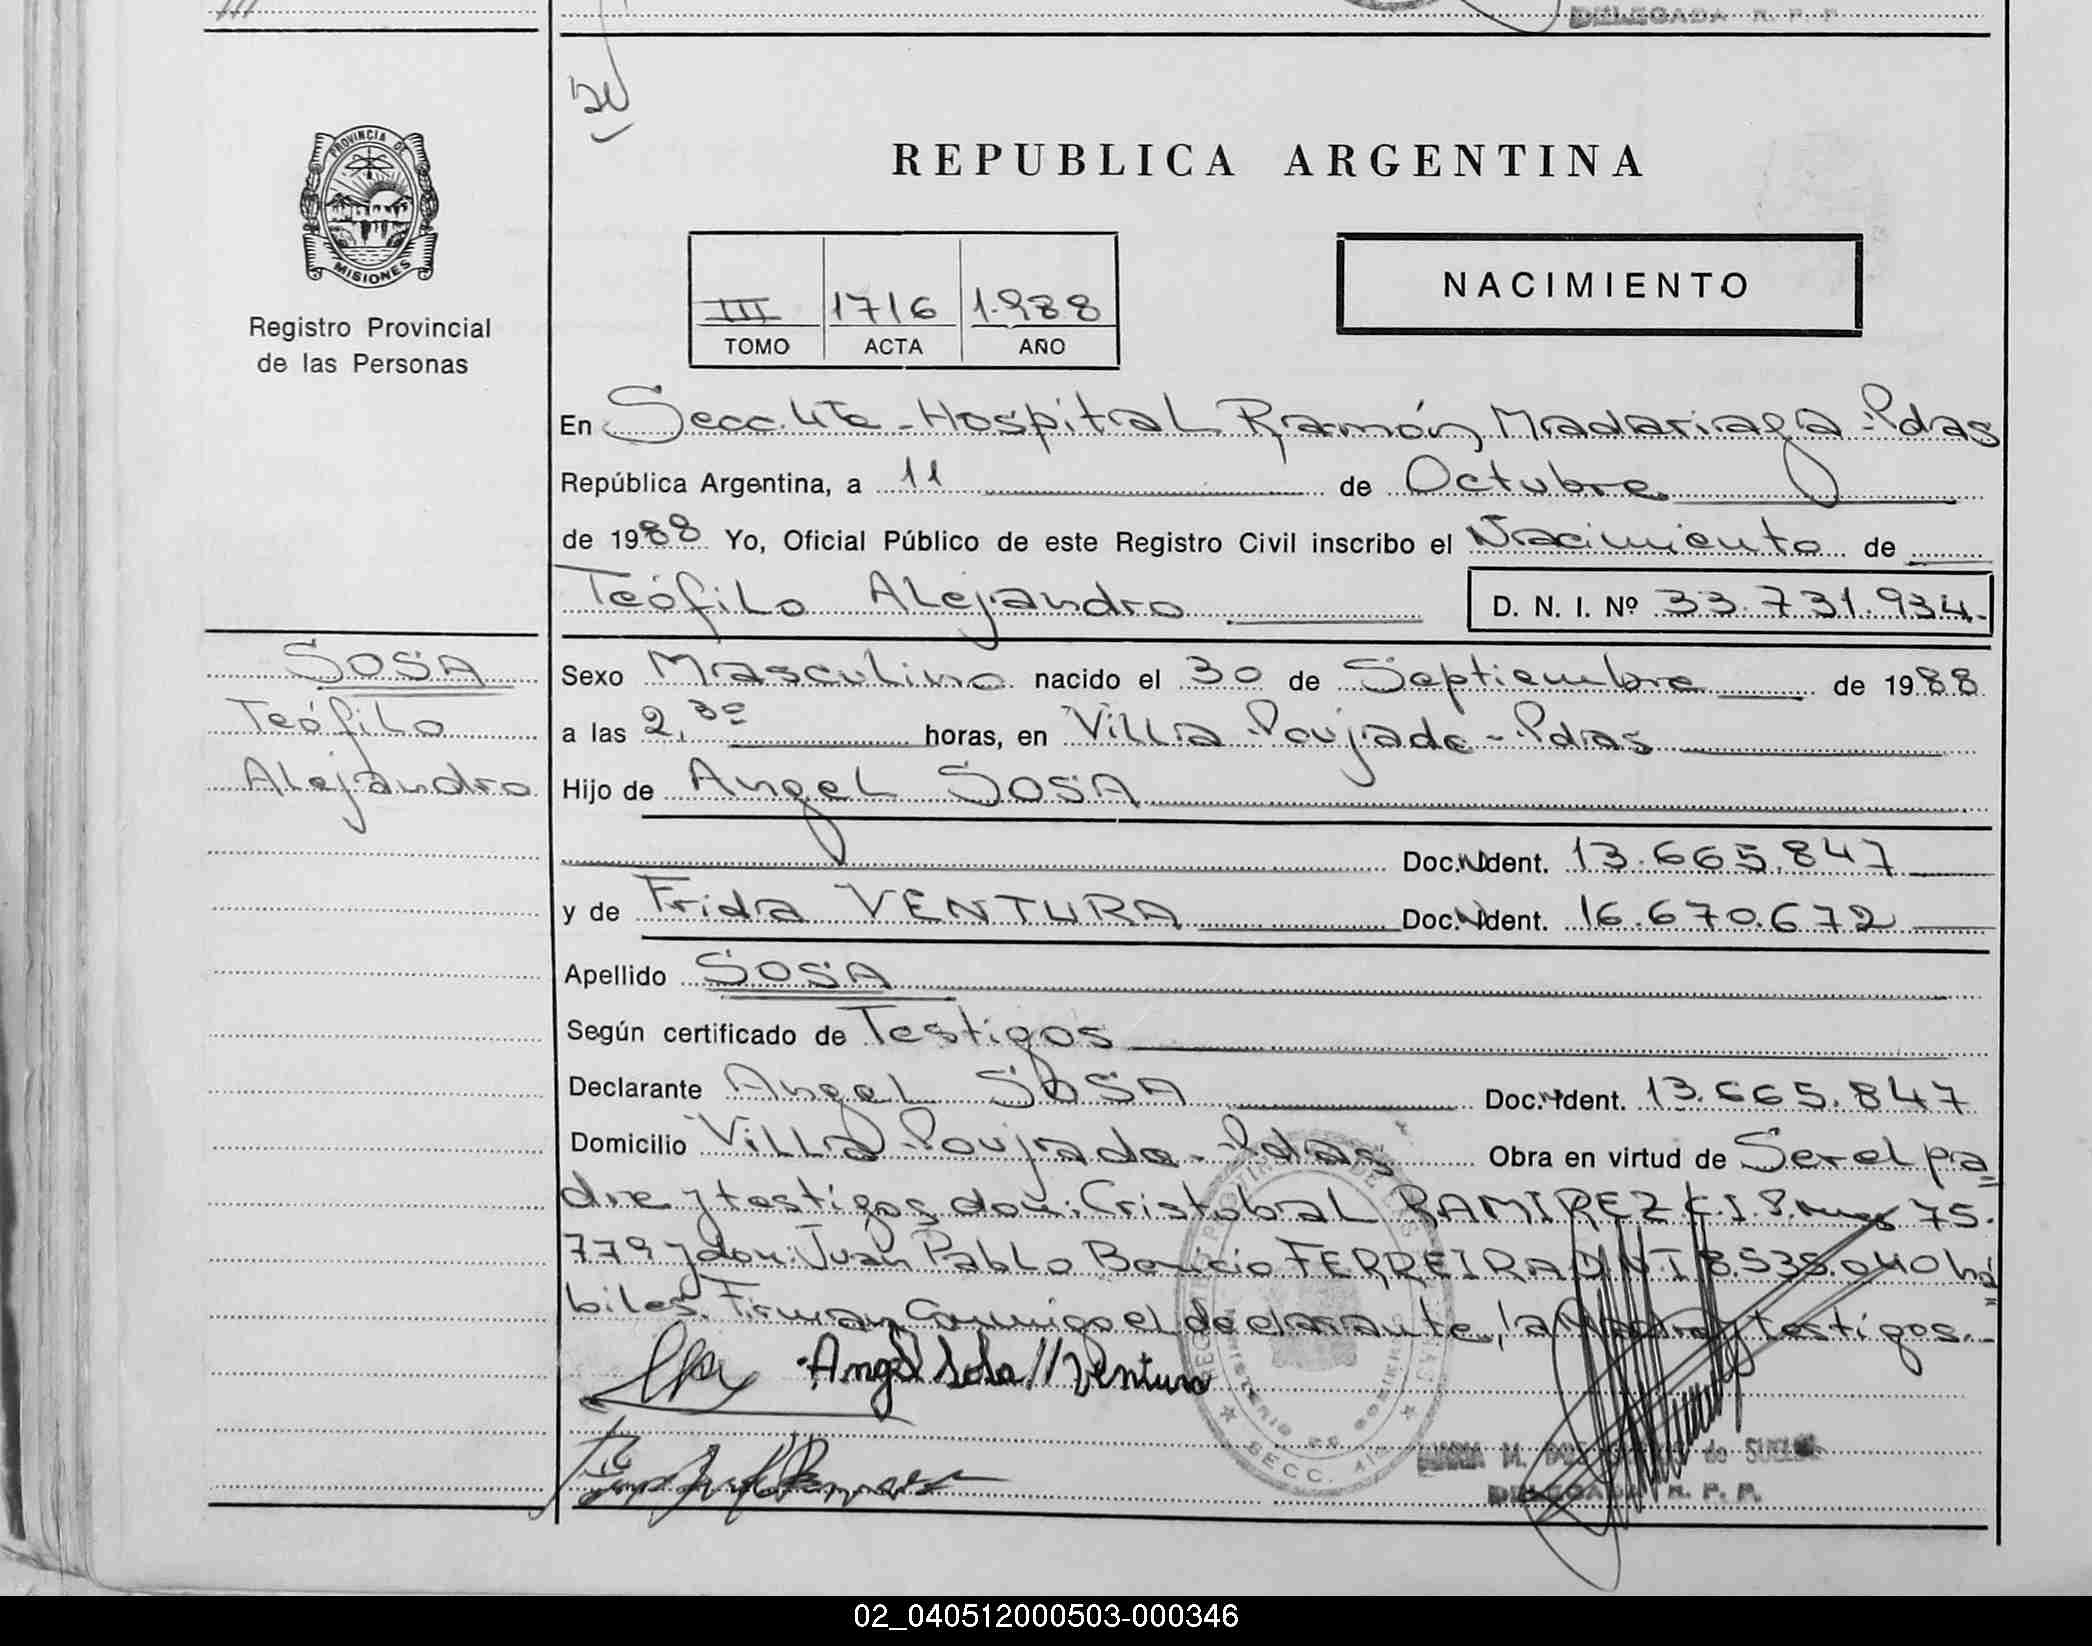 DELEGADA R. P. P.
PROVINCIA DE
MISIONES
Registro Provincial
de las Personas
REPUBLICA ARGENTINA
III 1716 1.988
TOMO ACTA AÑO
NACIMIENTO
En Secc. 4ta - Hospital Ramón Madariaga - Pdas
República Argentina, a 11 de Octubre
de 1988 Yo, Oficial Público de este Registro Civil inscribo el Nacimiento de
Teófilo Alejandro D. N. I. Nº 33.731.934.-
SOSA
Teófilo
Alejandro
Sexo Masculino nacido el 30 de Septiembre de 1988
a las 2,30 horas, en Villa Poujade - Pdas
Hijo de Angel SOSA
Doc. N Ident. 13.665.847
y de Frida VENTURA Doc. N Ident. 16.670.672
Apellido SOSA
Según certificado de Testigos
Declarante Angel SOSA Doc. N Ident. 13.665.847
Domicilio Villa Poujade - Pdas Obra en virtud de Ser el pa
dre y testigos don: Cristobal RAMIREZ C.I. P. Mnes 75.
779 y don: Juan Pablo FERREIRA DNI 8.535.040 há
biles. Firman Conmigo el declarante, la Madre y testigos.-
Angel Sosa // Ventura
MINISTERIO DE GOBIERNO
SECC. 4ta
MARIA M. de SUELDO
DELEGADA R. P. P.
02_040512000503-000346